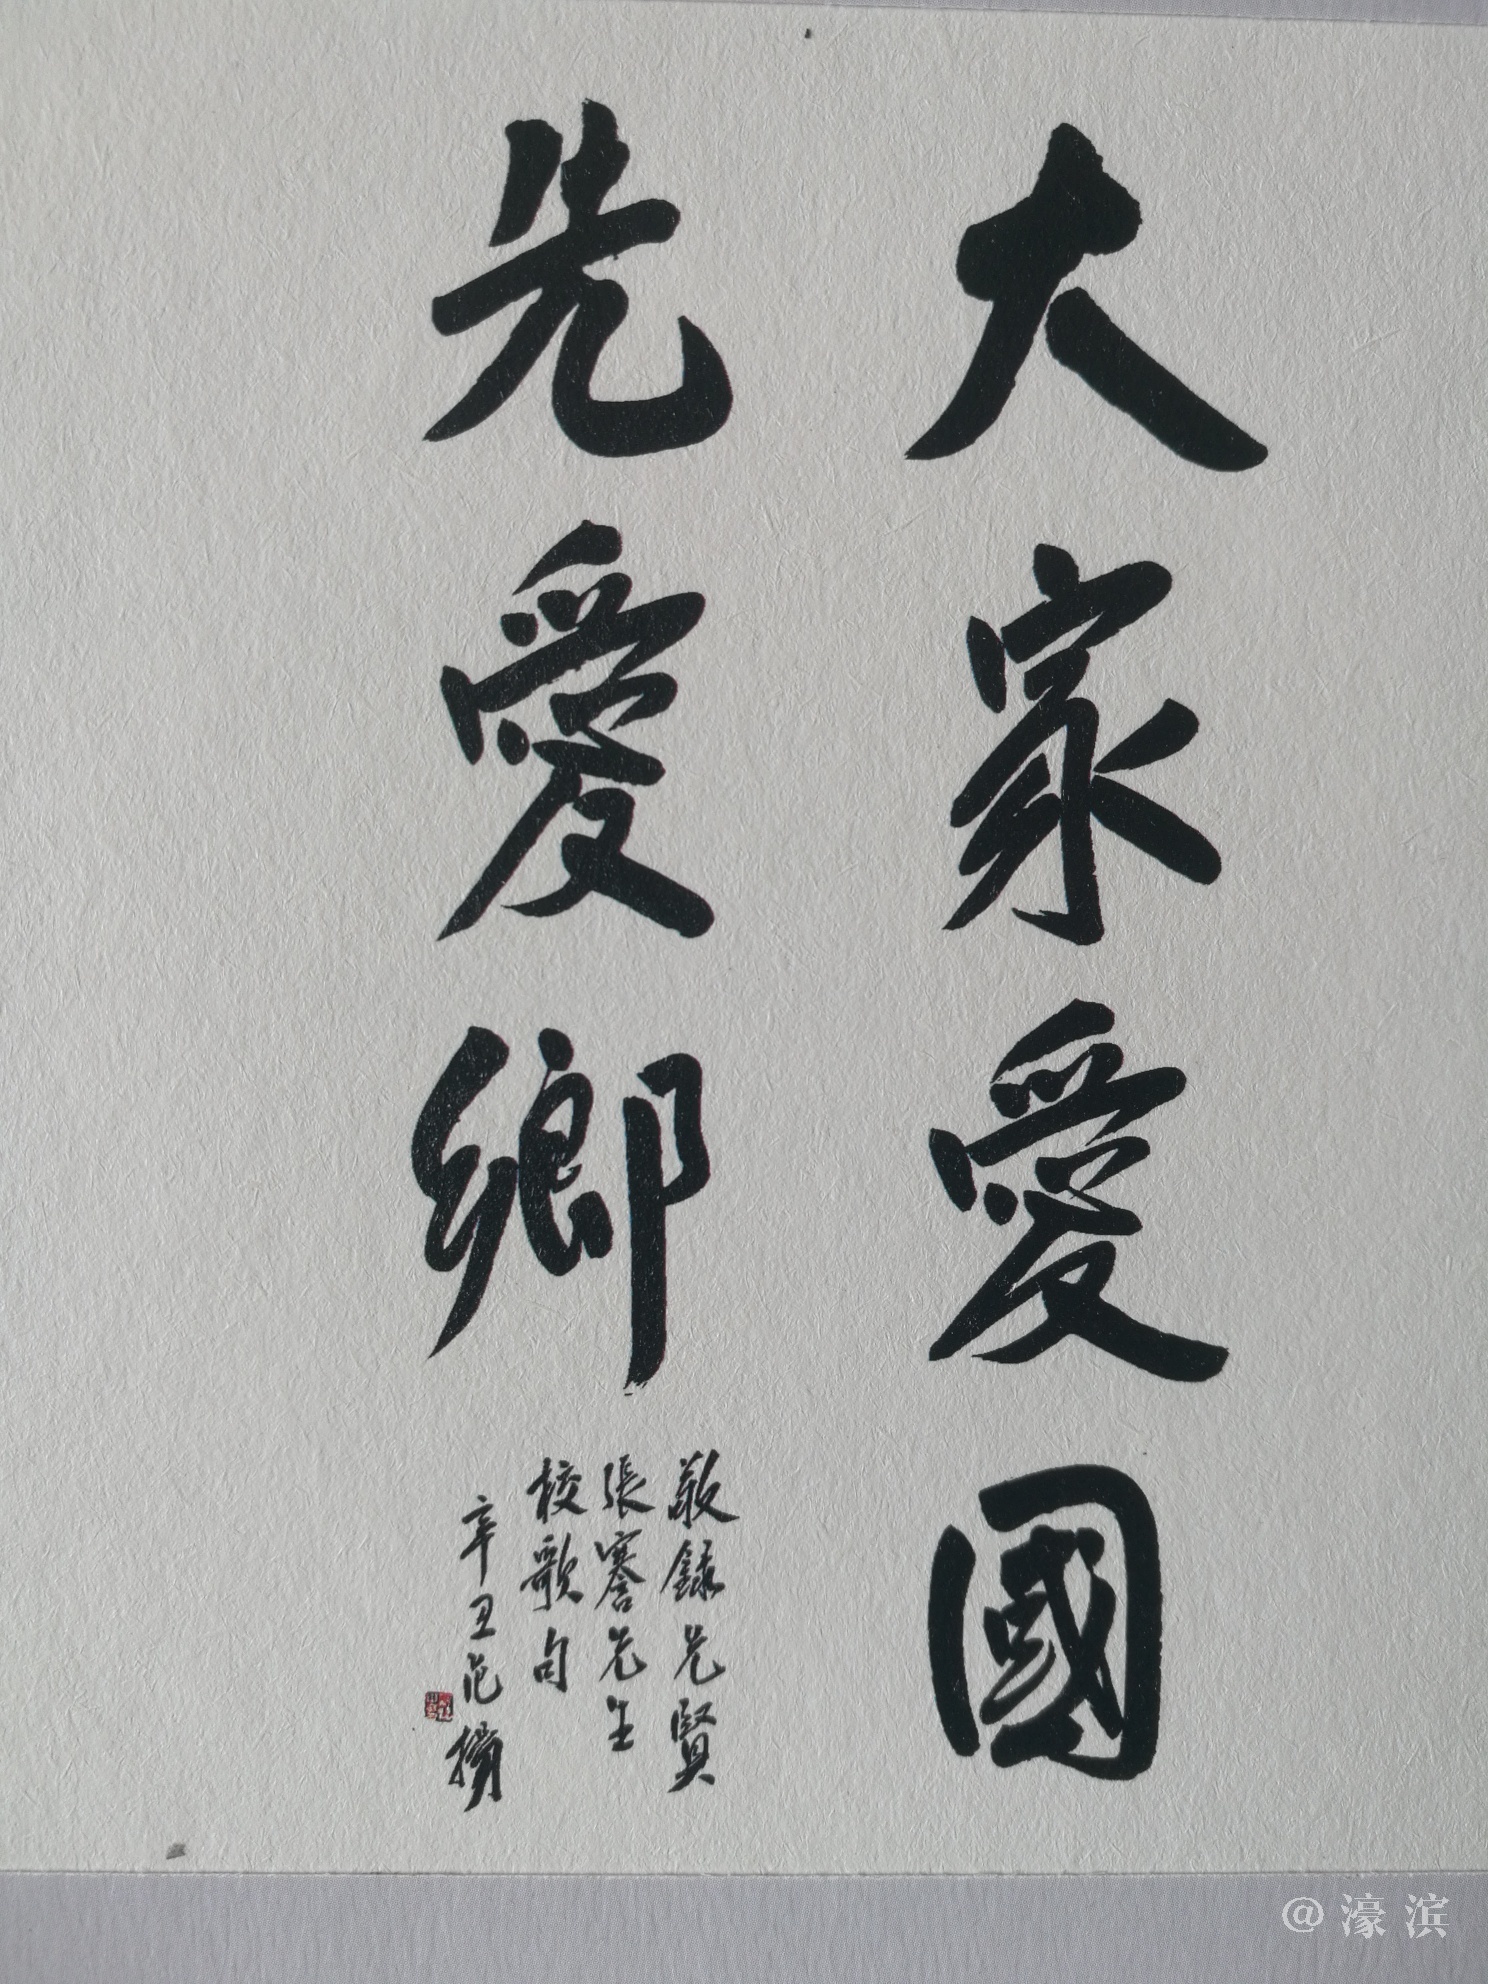 大家愛國
先愛鄉
敬錄先賢
張謇先生
校歌句
辛丑范擴
@濠滨